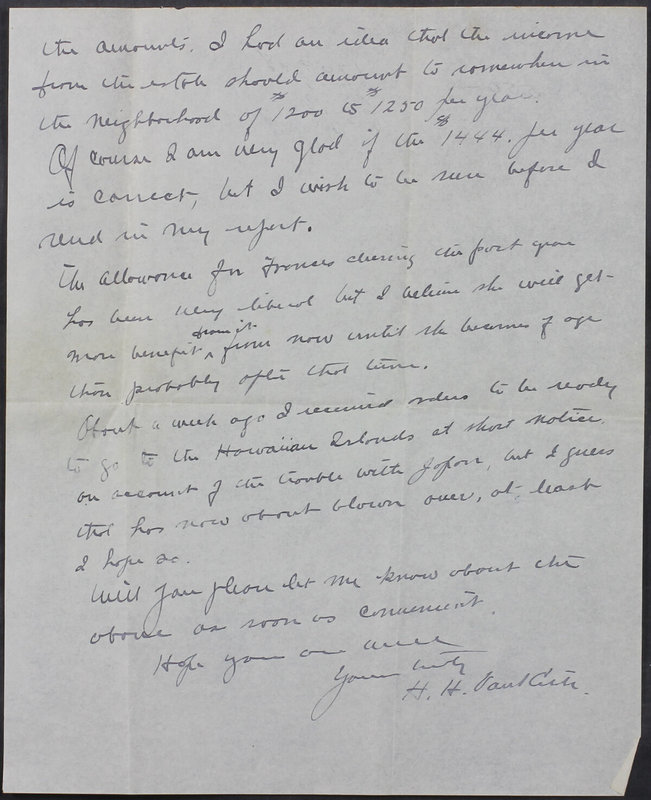 the amounts. I had an idea that the income
from the estate should amount to somewhere in
the neighborhood of $1200 to $1250 per year.
Of course I am very glad if the $1444. per year
is correct, but I wish to be sure before I
send in my report.
The allowance for Frances during the past year
has been very liberal but I believe she will get
more benefit from it from now until she becomes of age
than probably after that time.
About a week ago I received orders to be ready
to go to the Hawaiian Islands at short notice
on account of the trouble with Japan, but I guess
that has now about blown over, at least
I hope so.
Will you please let me know about the
above as soon as convenient.
Hope you are well
Yours truly
H. H.